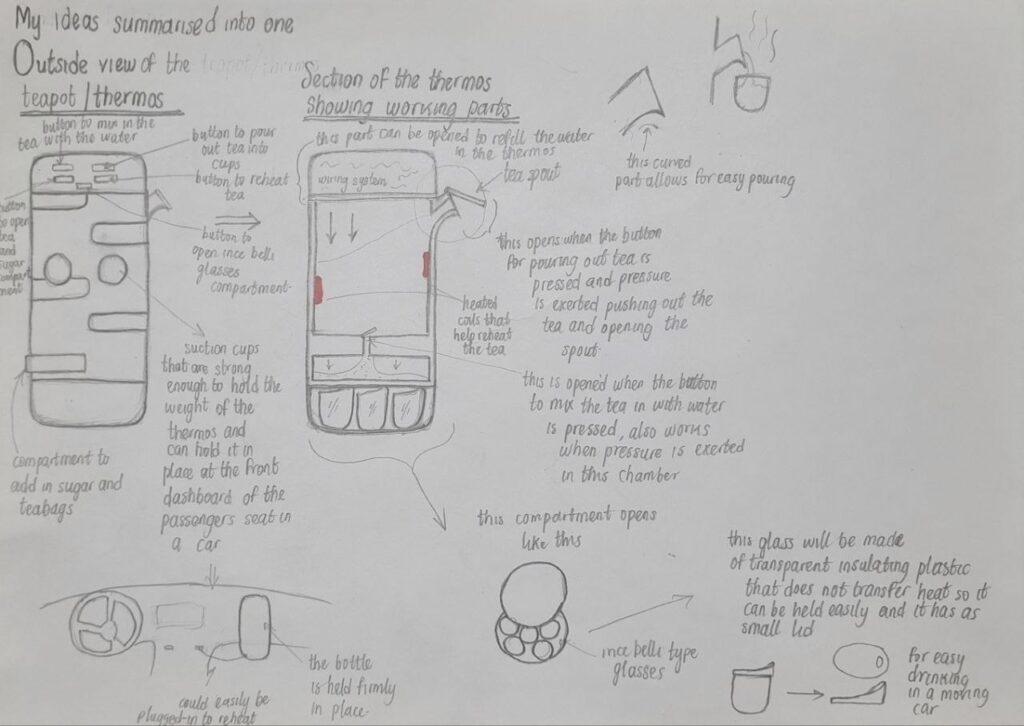 My ideas summarised into one
Outside view of the teapot/thermos
teapot/thermos
button to mix in the
tea with the water
button to pour
out tea into
cups
button to reheat
tea
button
to open
tea
and
sugar
compart
ment
button to
open ince belli
glasses
compartment.
suction cups
that are strong
enough to hold the
weight of the
thermos and
can hold it in
place at the front
dashboard of the
passengers seat in
a car
compartment to
add in sugar and
teabags
could easily be
plugged-in to reheat
the bottle
is held firmly
in place.
Section of the thermos
showing working parts
this part can be opened to refill the water
in the thermos
wiring system
tea spout
this opens when the button
for pouring out tea is
pressed and pressure
is exerted pushing out the
tea and opening the
spout.
heated
coils that
help reheat
the tea
this is opened when the button
to mix the tea in with water
is pressed, also works
when pressure is exerted
in this chamber
this compartment opens
like this
ince belli type
glasses
this curved
part allows for easy pouring
this glass will be made
of transparent insulating plastic
that does not transfer heat so it
can be held easily and it has as
small lid
for easy
drinking
in a moving
car